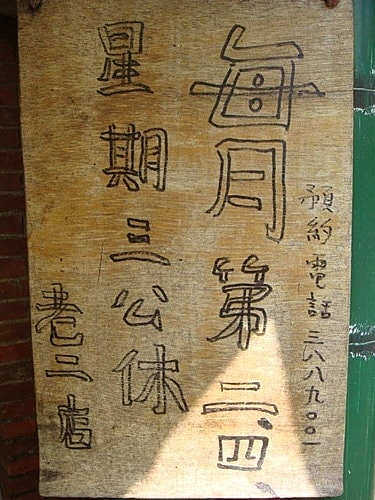 預約電話三八八九〇〇一
每月第二.四
星期三公休
巷二店